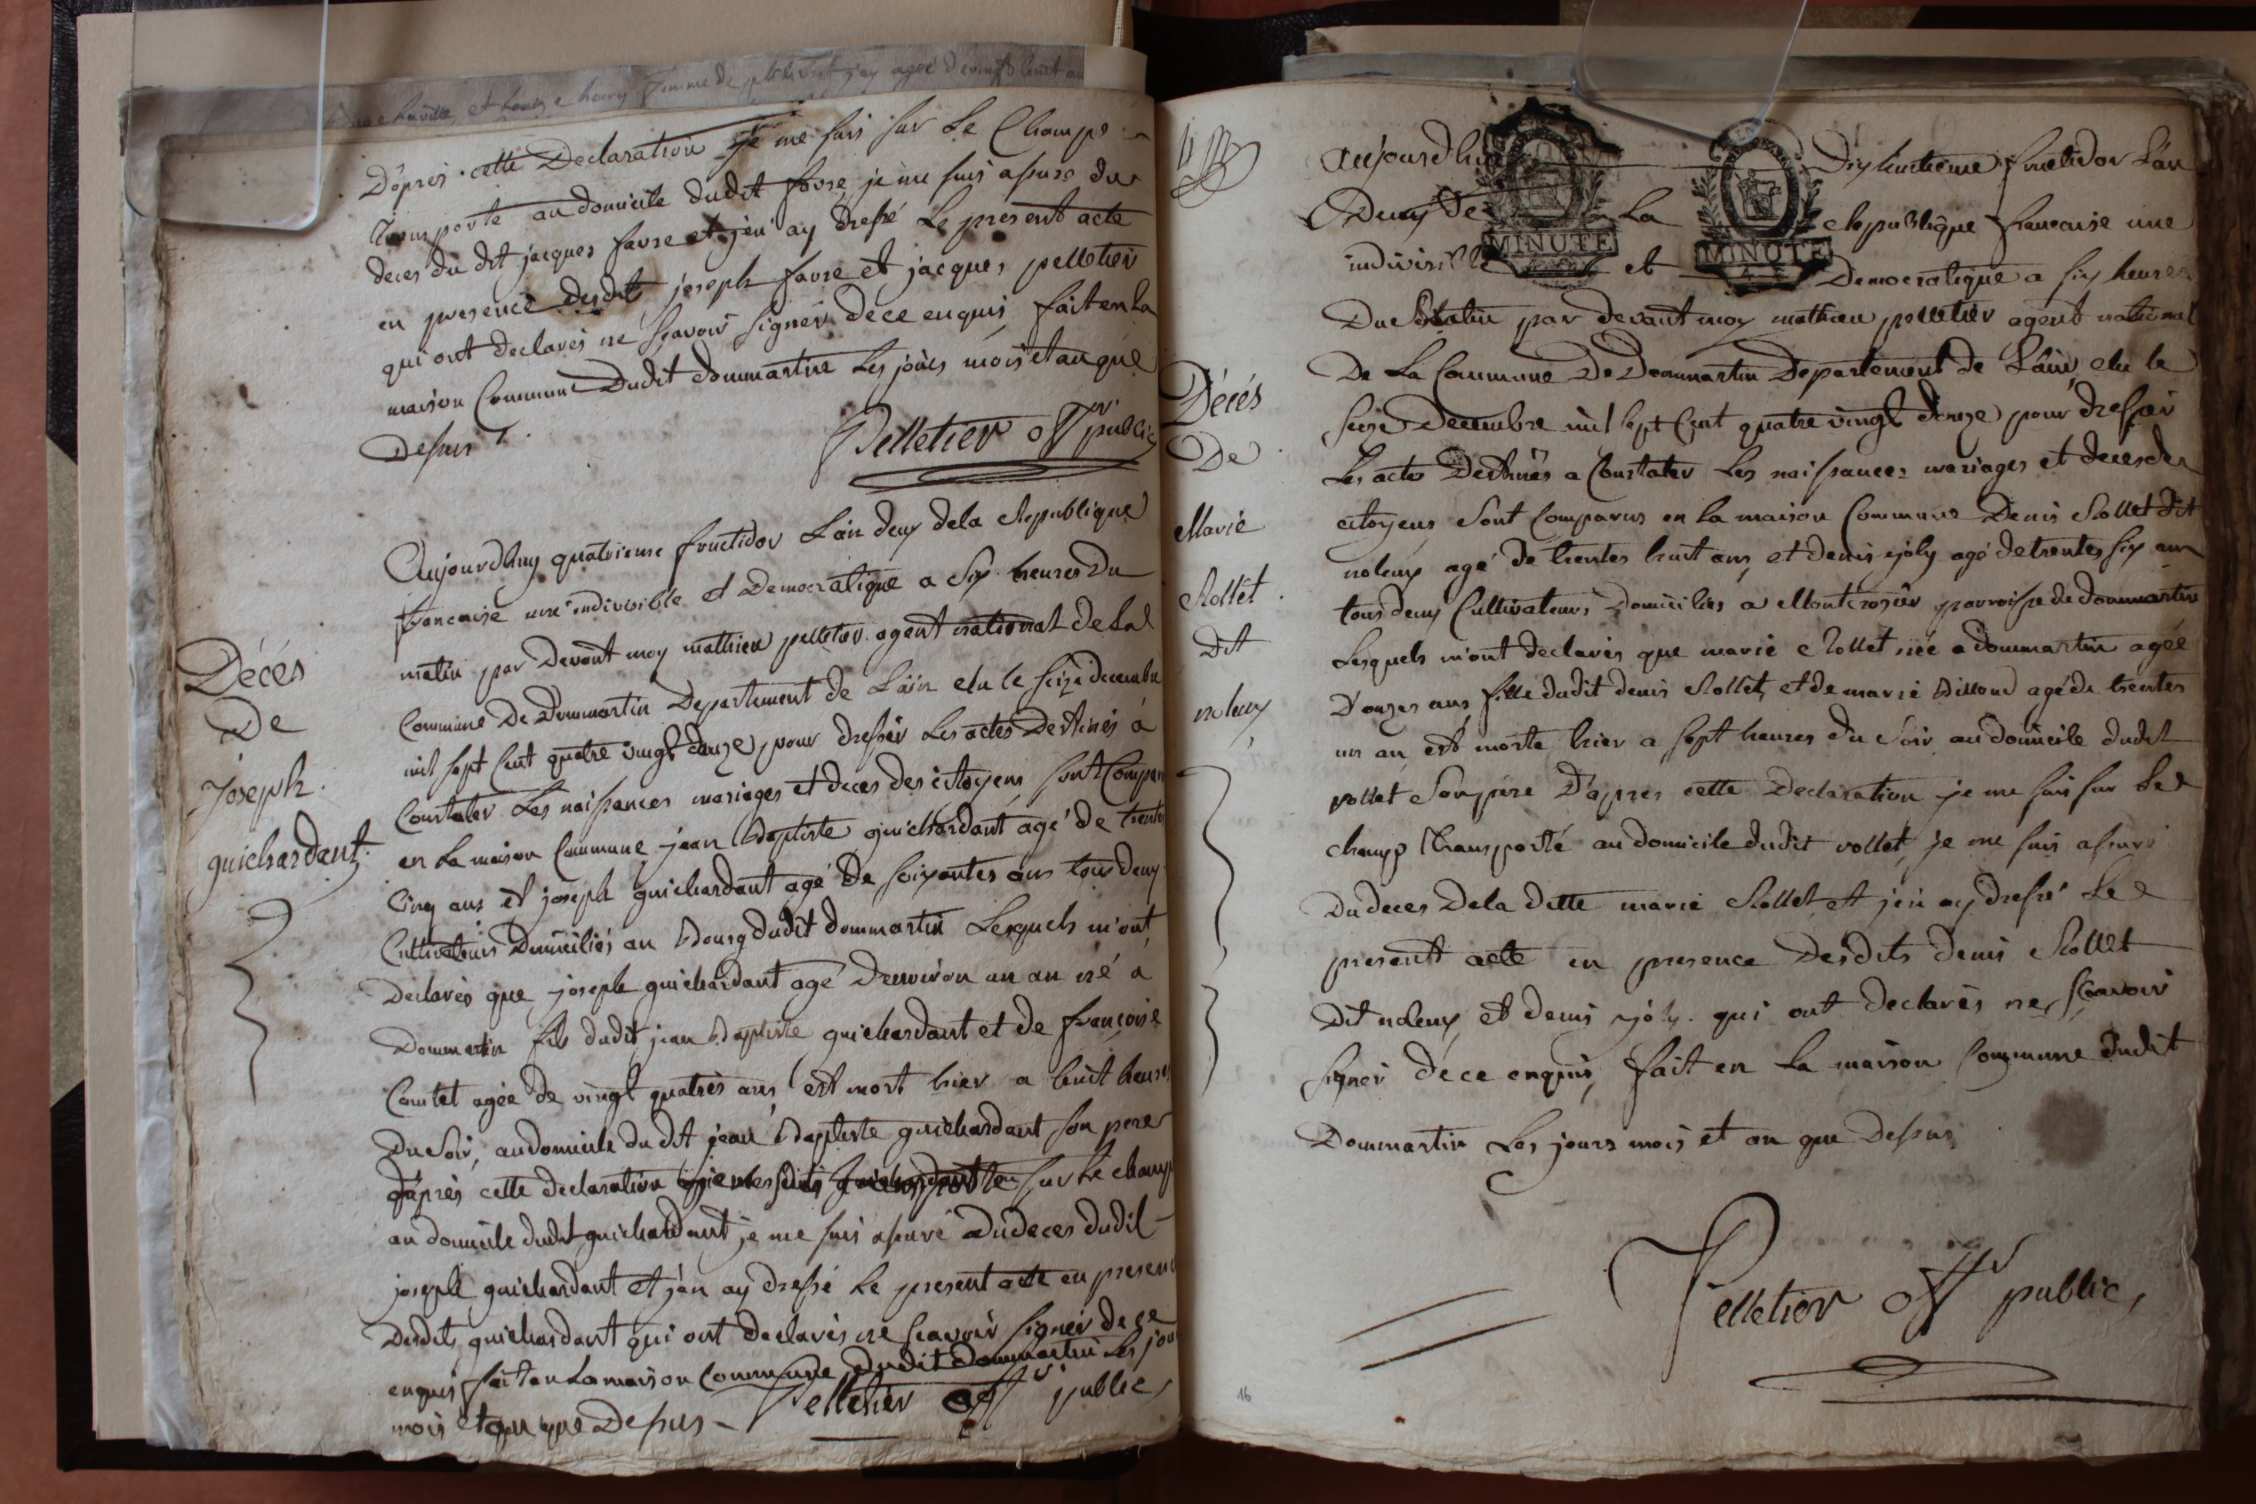 et henry femme de agée de vingt huit ans
D'après cette Declaration je me suis sur Le Champs
transporté au domicile dudit favre je me suis assuré du
deces du dit jacques favre et j'en ay dressé Le present acte
en presence desdit joseph favre et jacques pelletier
qui ont declarés ne scavoir signér déce enquis fait en la
maison Commune Dudit dommartin Les jours mois et an que
dessus
Pelletier offr public
Décés
De
joseph
guichardant
Aujourdhuy quatrieme fructidor L'an deux dela Republique
francaise une indivisible et Democratique a Six heures Du
matin par Devant moy mathieu pelletier agent national de La
Commune De Dommartin Departement de L'ain elu le seize decembre
mil sept Cent quatre vingt douze, pour dressér Les actes Destinés á
Constater Les naissances mariages et deces des citoyens sont Comparu
en La maison Commune jean Baptiste guichardant agé de trente
Cinq ans et joseph guichardant agé De soixantes ans tous deux
Cultivateurs Domiciliés au Bourg dudit dommartin Lesquels m'ont
Declarés que joseph guichardant agé D'environ un an né a
Dommartin fils dudit jean Baptiste guichardant et de françoise
Comtet agée de vingt quatrés ans est mort hier a huit heures
Du Soir, au domicile du dit jean Baptiste guichardant son pere
d'après cette declaration sur Le champ
au domicile dudit guichardant je me suis assuré Du deces dudit
joseph guichardant et j'en ay dressé Le present acte en presence
Desdits guichardant qui ont declarés ne scavoir signér de ce
enquis fait en La maison Commune dudit dommartin Les jour
mois et an que Dessus
Pelletier offr public
Décés
De
Marie
Rollet
Dit
noleux
aujourdhui Dixhuitieme fructidor L'an
Deux De La Republique francaise une
indivisible et Democratique a six heures
MINUTE
MINUTE
Du Matin par devant moy mathieu pelletier agent national
De La Commune De Dommartin Departement de L'ain elu le
Seize Decembre mil sept Cent quatre vingt douze pour dressér
Les actes Destinés a Constater Les naissances mariages et deces des
citoyens Sont Comparus en La maison Commune Denis Rollet dit
noleux agé de trentes huit ans et denis joly agé de trentes six ans
tous deux Cultivateurs Domiciliés a Montrosier parroisse de dommartin
Lesquels m'ont declarés que marie Rollet née a dommartin agée
D'ouzes ans fille dudit denis Rollet, et de marie Billoud agé de trentes
un an est morte hier a sept heures du Soir au domicile dudit
rollet Son pére D'apres cette Declaration je me suis sur Le
champ transporté au domicile dudit rollet, je me suis assuré
Du deces De la ditte marie Rollet et j'en ay dressé Le
present acte en presence Desdits denis Rollet
Dit noleux et denis joly qui ont declarés ne scavoir
signér déce enquis, fait en La maison Commune dudit
Dommartin Les jours mois et an que Dessus
Pelletier offr public
16